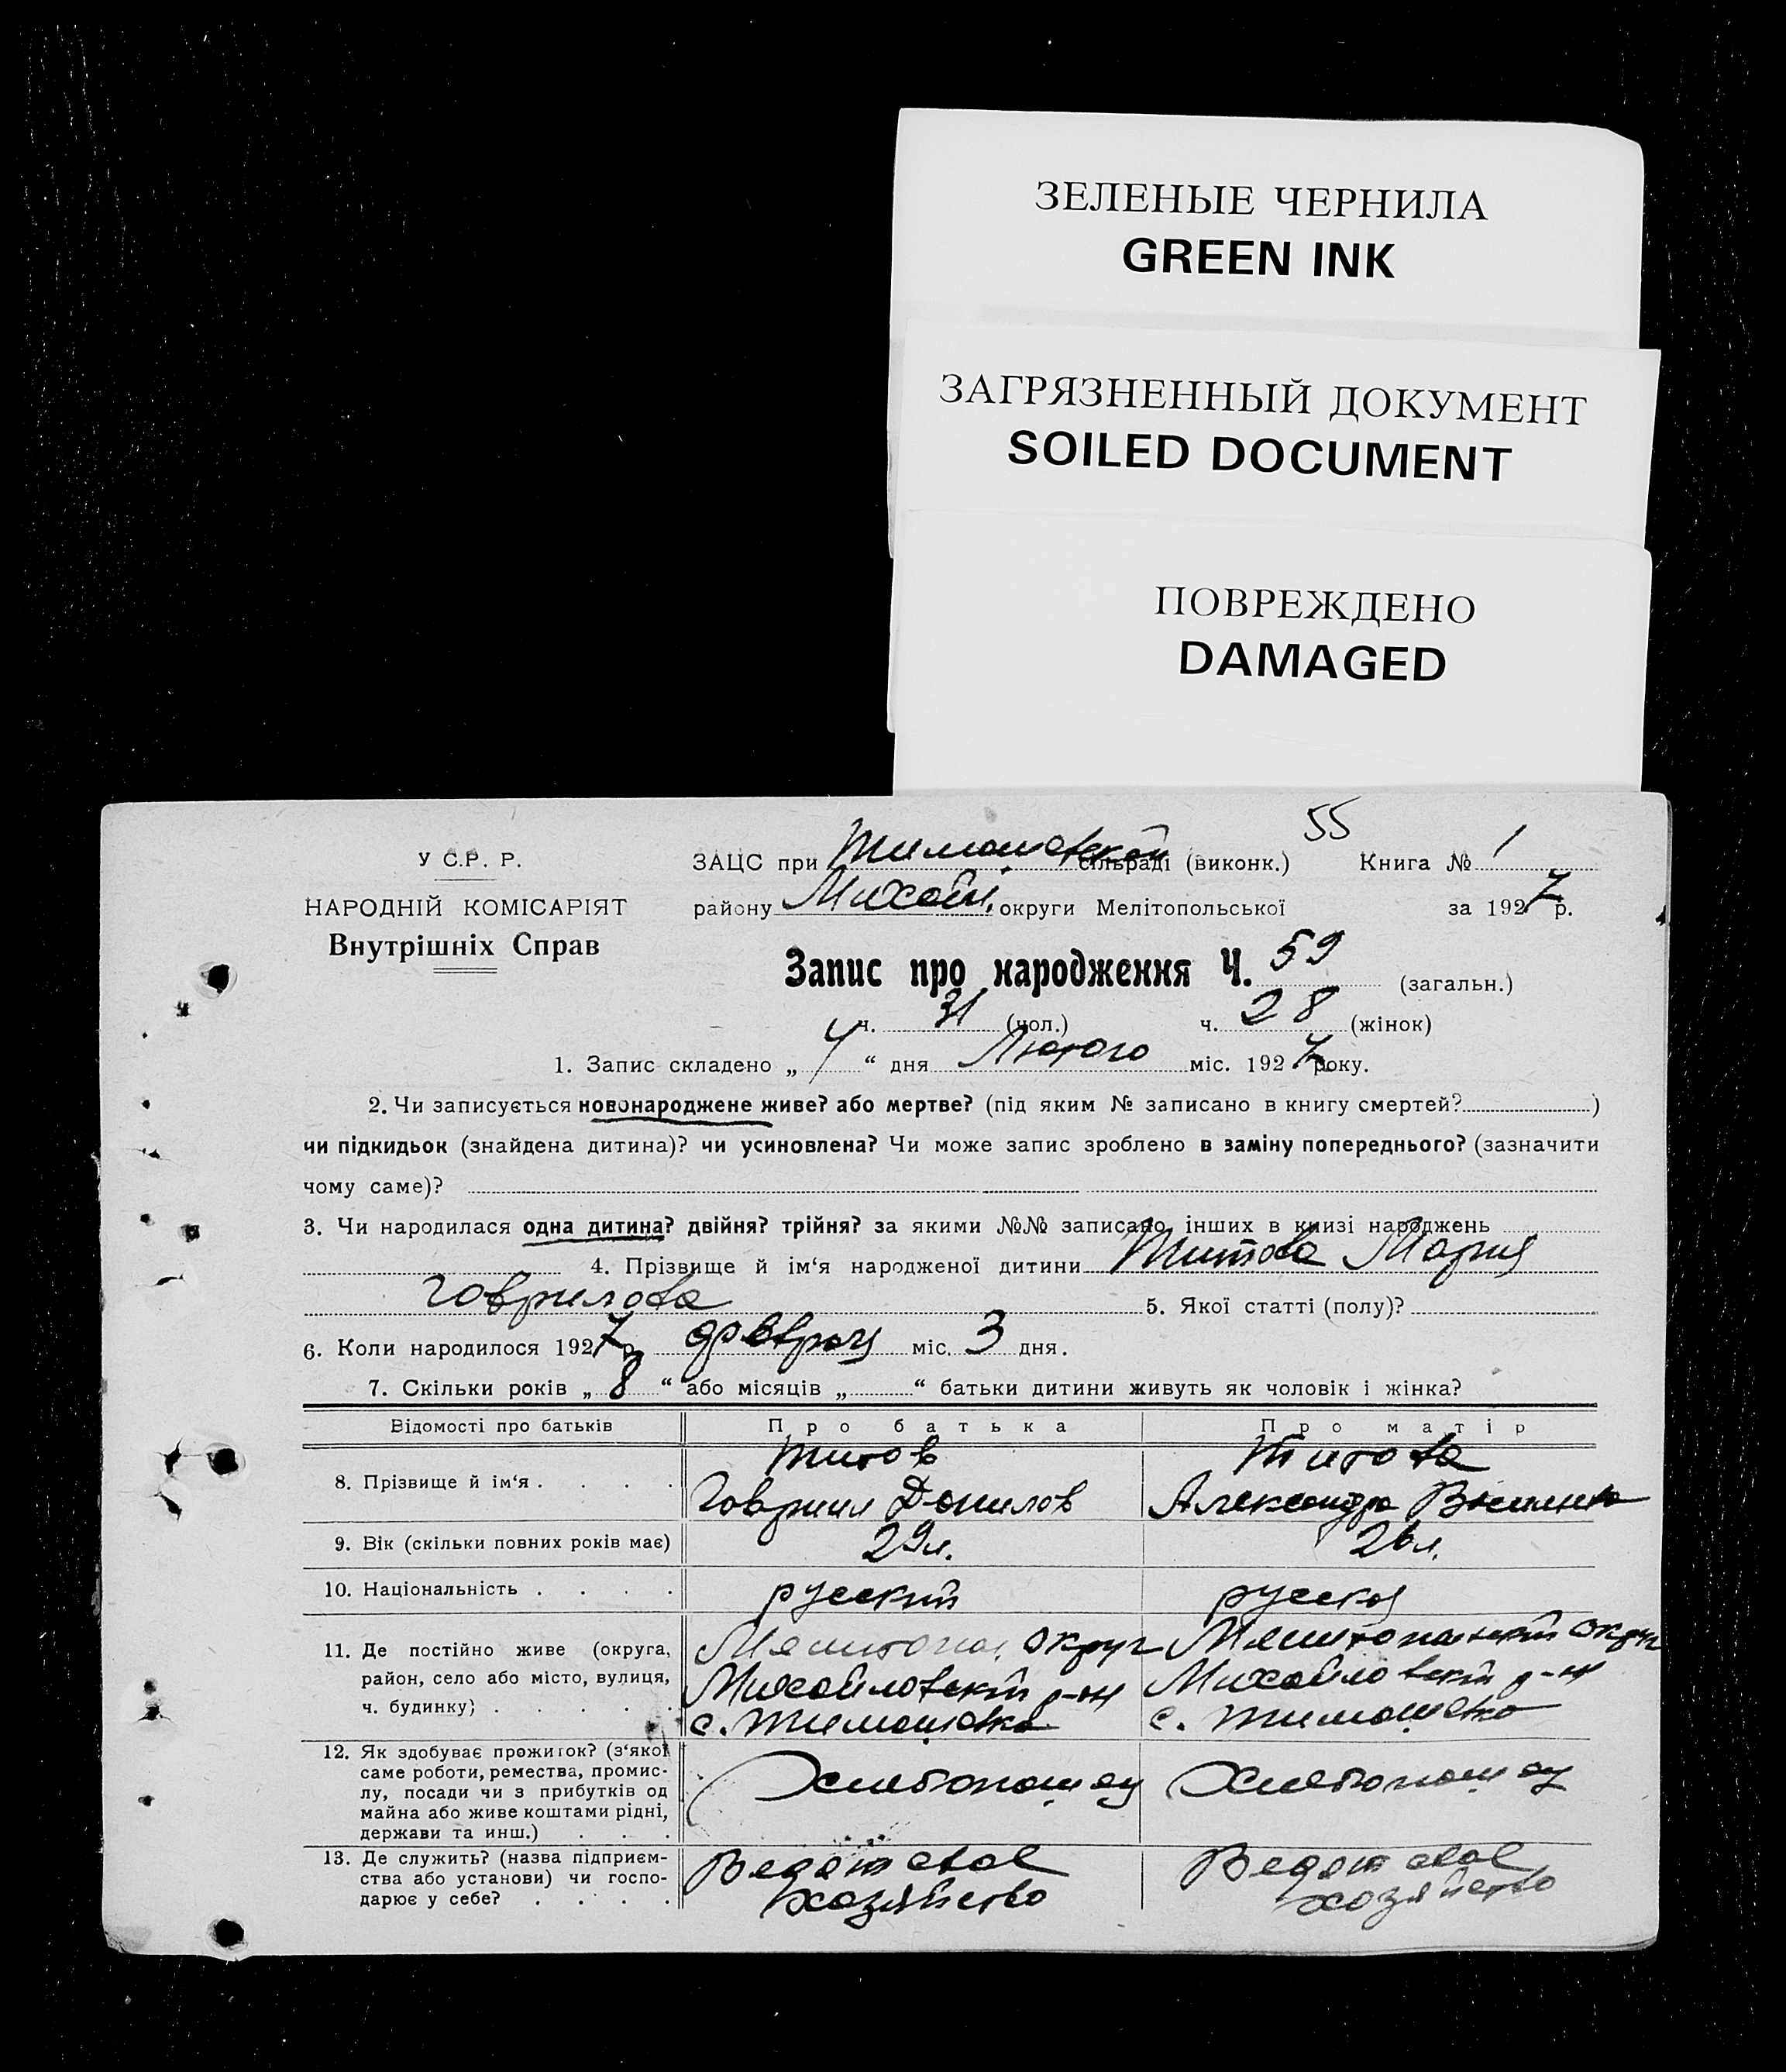 ЗЕЛЕНЫЕ ЧЕРНИЛА
GREEN INK
ЗАГРЯЗНЕННЫЙ ДОКУМЕНТ
SOILED DOCUMENT
ПОВРЕЖДЕНО
DAMAGED
55
У С.Р. Р.
НАРОДНІЙ КОМІСАРІЯТ
Внутрішніх Справ
ЗАЦС при Тимошевской сільраді (виконк.) Книга № 1
району Михайл. округи Мелітопольської за 1927 р.
Запис про народження Ч. 59 (загальн.)
ч. 31 (чол.) ч. 28 (жінок)
1. Запис складено „ 4 “ дня Лютого міс. 1927 року.
2. Чи записується новонароджене живе? або мертве? (під яким № записано в книгу смертей? )
чи підкидьок (знайдена дитина)? чи усиновлена? Чи може запис зроблено в заміну попереднього? (зазначити
чому саме)?
3. Чи народилася одна дитина? двійня? трійня? за якими №№ записано інших в книзі народжень
4. Прізвище й ім‘я народженої дитини Титова Мария
Гаврилова 5. Якої статті (полу)?
6. Коли народилося 1927 р. февраля міс. 3 дня.
7. Скільки років „ 8 “ або місяців „ “ батьки дитини живуть як чоловік і жінка?
Відомості про батьків Про батька Про матір
8. Прізвище й ім‘я . . . .
Титов
Гавриил Данилов
Титова
Александра
9. Вік (скільки повних років має) 29 л. 26 л.
10. Національність . . . . русский русская
11. Де постійно живе (округа,
район, село або місто, вулиця,
ч. будинку) . . . . .
Мелитопол. округ
Михайловский р-он
с. Тимошевка
Мелитопольский округ
Михайловский р-он
с. Тимошевка
12. Як здобуває прожиток? (з‘якої
саме роботи, ремества, промис-
лу, посади чи з прибутків од
майна або живе коштами рідні,
держави та инш.) . . .
Хлебопашец
Хлебопашец
13. Де служить? (назва підприєм-
ства або установи) чи госпо-
дарює у себе? . . . .
Ведет свое
хозяйство
Ведет свое
хозяйство